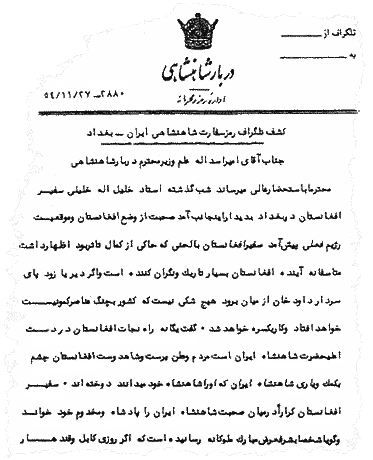 تلگراف از
به
دربار شاهنشاهی
اداره رمز و محرمانه
۲۸۸۰ــ ۵۴/۱۱/۲۷
کشف تلگراف رمز سفارت شاهنشاهی ایران ــ بغداد
جناب آقای امیر اسداله علم وزیر محترم دربار شاهنشاهی
محترما باستحضار عالی میرساند شب گذشته استاد خلیل اله خلیلی سفیر
افغانستان در بغداد بدیدار اینجانب آمد صحبت از وضع افغانستان وموقعیت
رژیم فعلی پیش آمد سفیر افغانستان بالحنی که حاکی از کمال تاثر بود اظهار داشت
متاسفانه آینده افغانستان بسیار تاریک ونگران کننده است واگر دیر یا زود پای
سردار داود خان از میان برود هیچ شکی نیست که کشور بچنگ عناصر کمونیست
خواهد افتاد وکاریکسره خواهد شد ۰ گفت یگانه راه نجات افغانستان در دست
اعلیحضرت شاهنشاه ایران است مردم وطن پرست وشاهدوست افغانستان چشم
بکمک ویاری شاهنشاه ایران که اورا شاهنشاه خود میدانند دوخته اند ۰ سفیر
افغانستان کرارا در میان صحبت شاهنشاه ایران را پادشاه ومخدوم خود خواند
وگویا شخصا بشرفعرض مبارک ملوکانه رسانیده است که اگر روزی کابل وقندهار